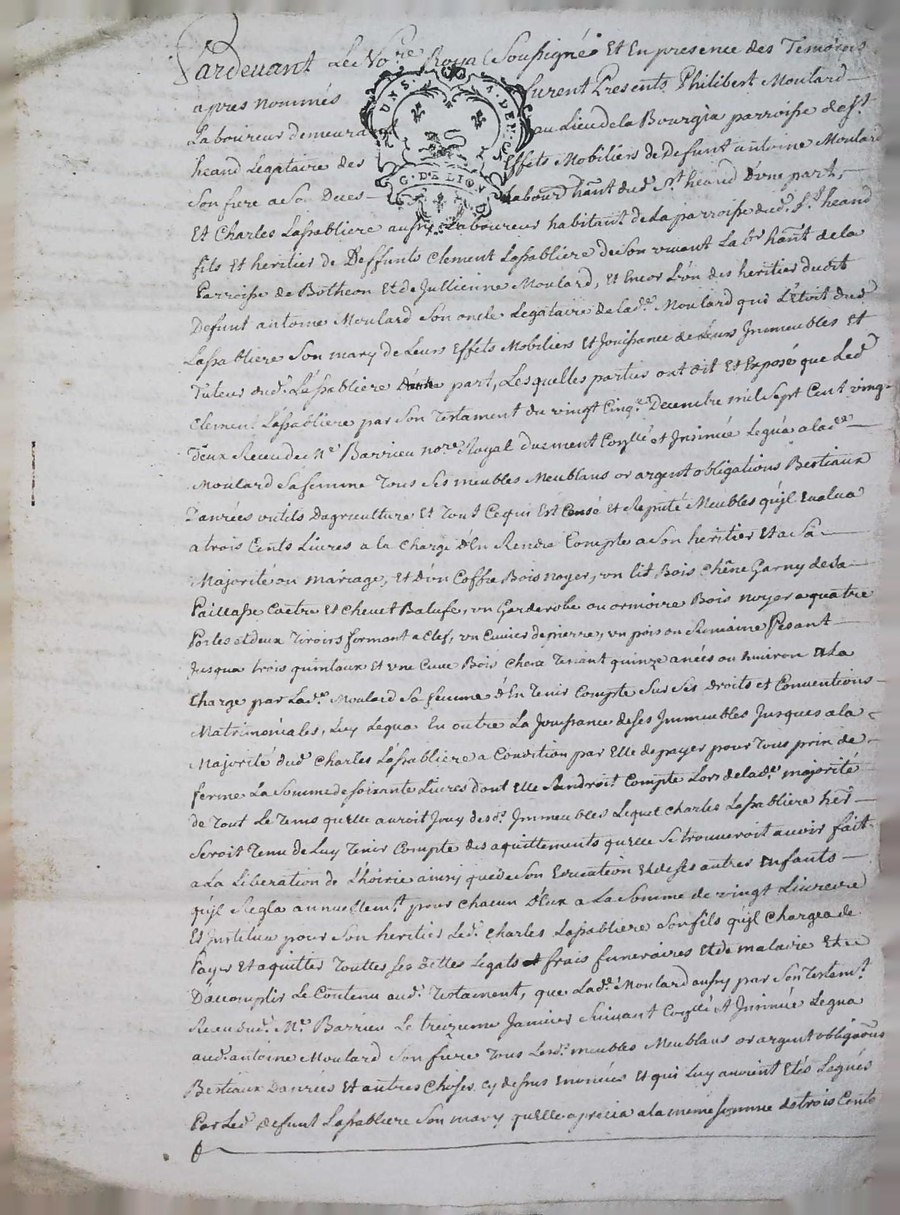 Pardevant Le No.re Royal Soussigné Et En presence des Temoins
apres nommés furent Presents Philibert Moulard
Laboureur demeura au Lieu de la Bourgia parroisse de St
heand Legataire des Effets Mobiliers de Defunt antoine Moulard
Son frere a Son Deces Labourr hant dud. St heand D'une part,
UN S. A. DEN.
G. DE LION
Et Charles Lassabliere aussy Laboureur habitant de la parroisse dud. St heand
fils Et heritier de Deffunts Clement Lassabliere de Son vivant Labr hant de la
Parroisse de Botheon Et de Jullienne Moulard, Et Encor L'un des heritiers dudit
Defunt antoine Moulard Son oncle Legataire de lad.e Moulard qui L'Etoit dud
Lassabliere Son mary de Leurs Effets Mobiliers Et Jouissance de Leurs Immeubles Et
Tuteur dud. Lassabliere part, Lesquelles parties ont dit Et Exposé que Led
Clement Lassabliere par Son Testament du vingt Cinq.e Decembre mil Sept Cent vingt
Deux Receu de Me Barrieu no.re Royal duement Conllé et Insinué Legua a lad.e
Moulard Sa femme Tous Ses meubles Meublans or argent obligations Bestiaux
Danrées outils Dagriculture Et Tout Ce qui Est Censé Et Reputé Meubles qu'il Evalua
a trois Cents Livres a la Charge D'En Rendre Compte a Son heritier Et a Sa
Majorité ou mariage, Et D'un Coffre Bois noyer, un lit Bois Chêne Garny de Sa
Paillasse Coetre Et Chevet Balufe, un Garderobe ou ormoire Bois noyer a quatre
Portes et deux Tiroirs fermant a Clef, un Cuvier de pierre, un pois ou Romaine Pesant
Jusqua trois quintaux Et une Cuve Bois Chêne Tenant quinze anées ou Environ Et La
Charge par Lad.e Moulard Sa femme D'En Tenir Compte Sur Ses Droits et Conventions
Matrimoniales, Luy Legua En outre La Jouissance de ses Immeubles Jusques a la
Majorité dud. Charles Lassabliere a Condition par Elle de payer pour Tous prix de
ferme La Somme de Soixante Livres dont Elle Rendroit Compte Lors de lad.e majorité
de Tout Le Tems quelle auroit Jouy desd. Immeubles Lequel Charles Lassabliere her
Seroit Tenu de Luy Tenir Compte des aquittements qu'elle Se trouveroit avoir fait
a La Liberation de L'hoirie ainsy que de Son Education Et de Ses autres Enfants
qu'il Regla annuellem.t pour Chacun D'Eux a La Somme de vingt Livres
Et Institua pour Son heritier Led. Charles Lassabliere Son fils qu'il Chargea de
Payer Et aquitter Touttes Ses Dettes Legats frais funeraires Et de maladie Et
D'acomplir Le Contenu aud. Testament, que Lad.e Moulard aussy par Son Testam.t
Receu dud. Me Barrieu Le treizieme Janvier Suivant Conllé Et Insinué Legua
aud. antoine Moulard Son frere Tous Lesd. meubles Meublans or argent obligaõns
Bestiaux Danrées Et autres Choses Cy dessus Enoncées Et qui Luy avoient Etés Legués
Par Led. defunt Lassabliere Son mary qu'elle aprecia a la même Somme de trois Cents